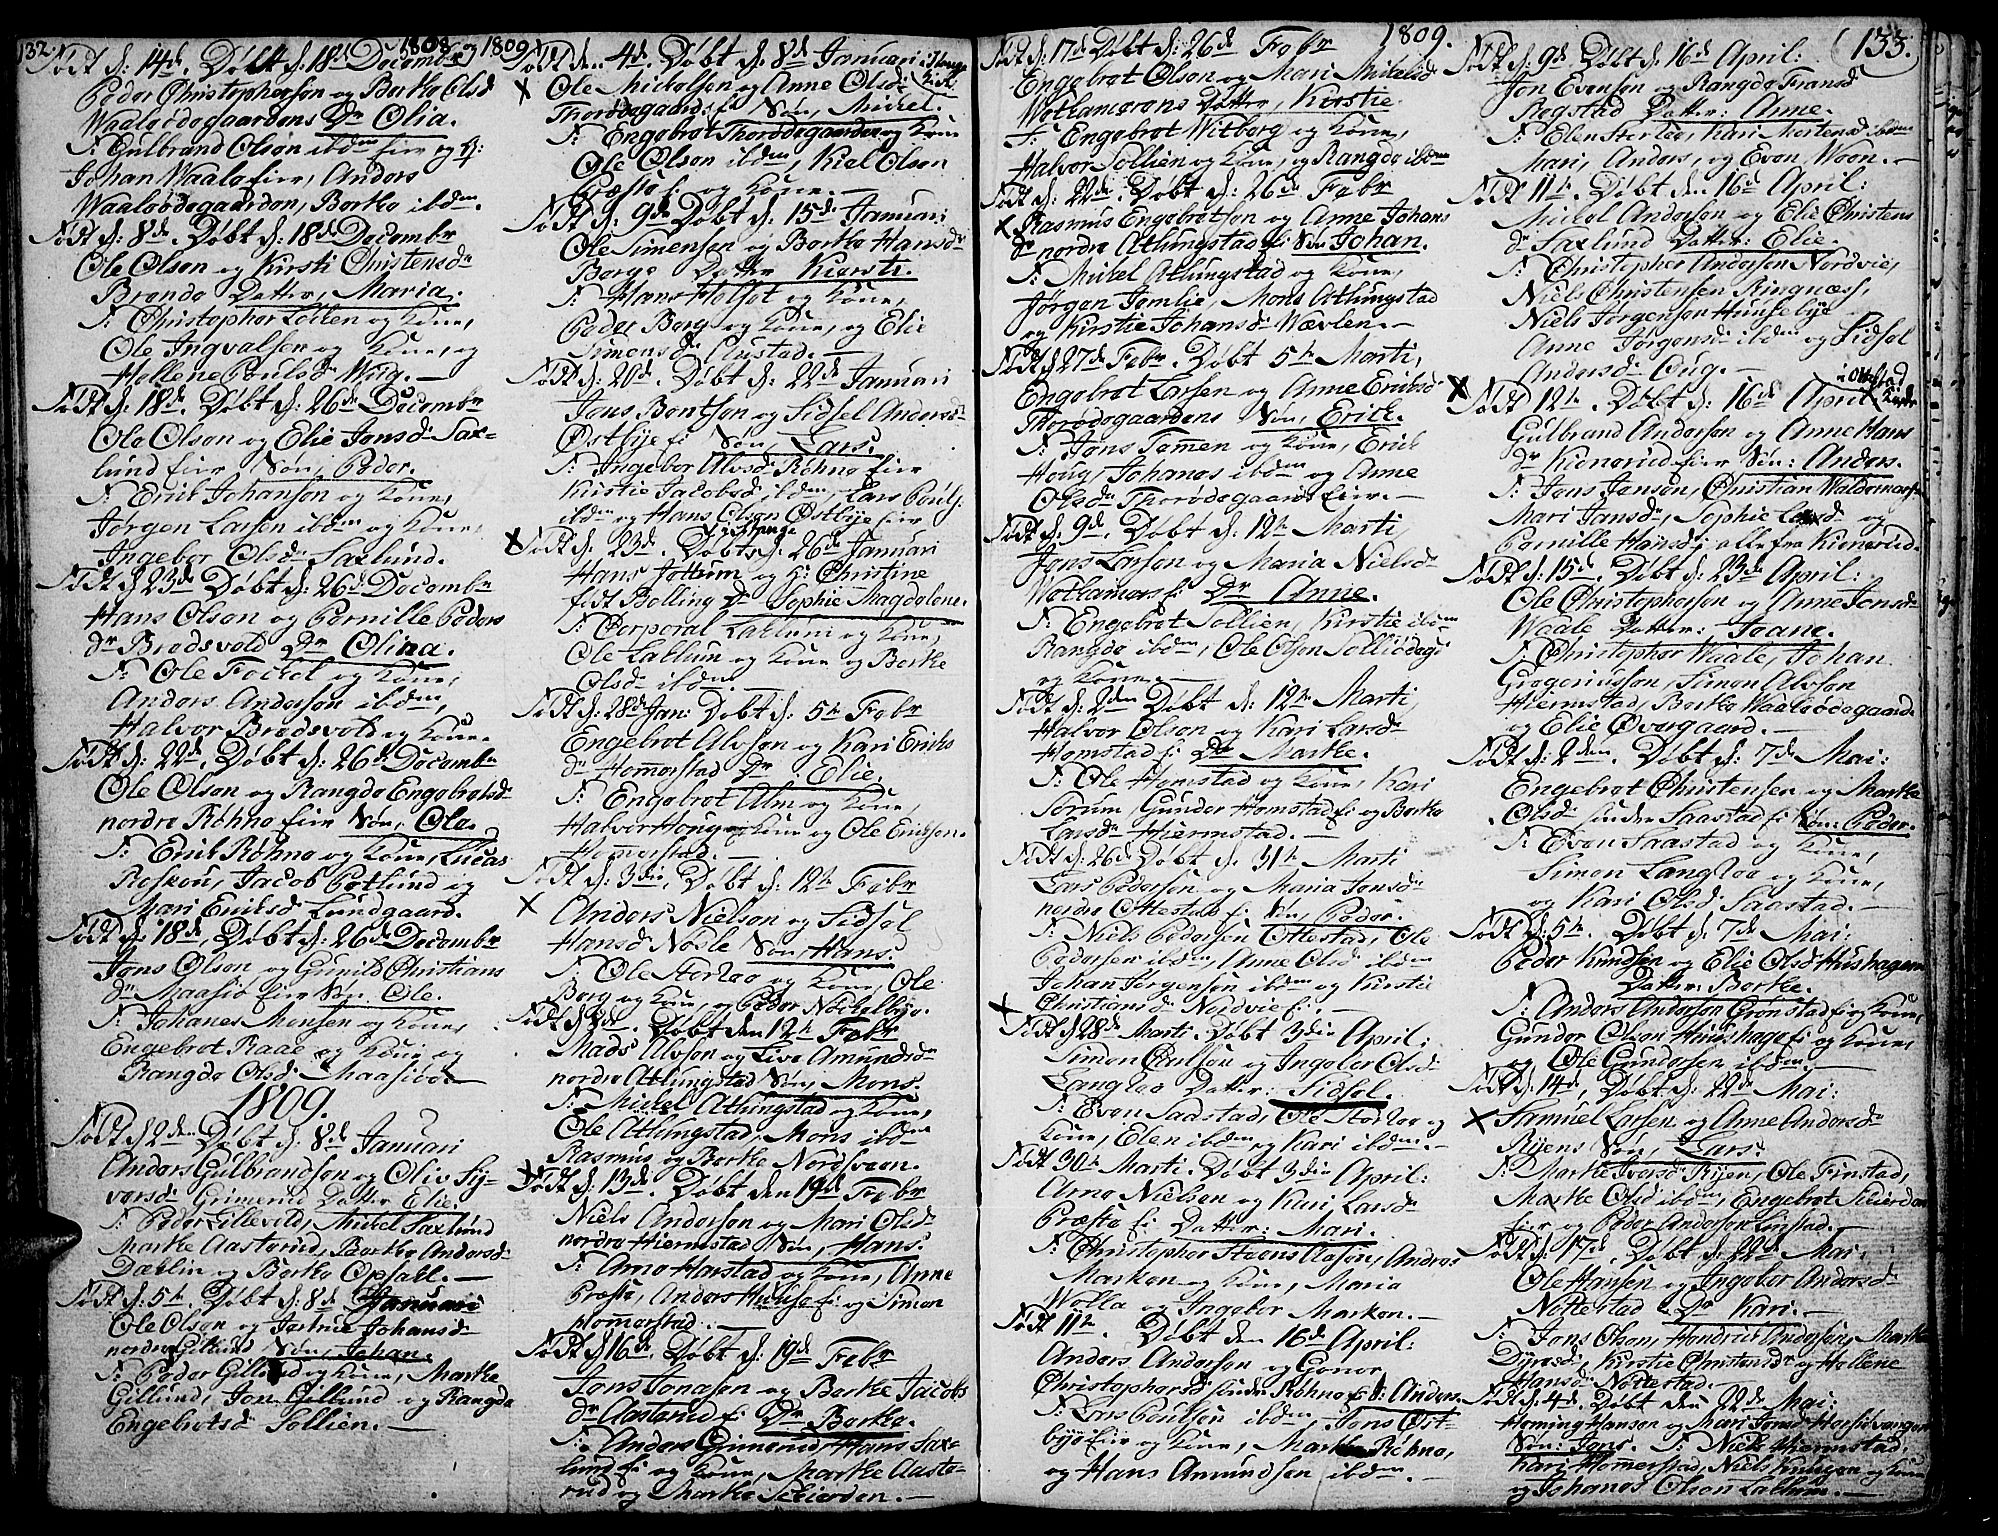 132.
1808 og 1809
Født d: 14de. Døbt d: 18de Decembr
Peder Christophersen og Berthe Olsd
Waaleødegaardens Dr Olia.
F: Gulbrand Olsen ibdm Eier og
Johan Waale Eier, Anders
Waaleødegaarden, Berthe ibdm.
Født d: 8de. Døbt d: 18de Decembr
Ole Olsen og Kirsti Christensdr
Brende Datter, Maria.
F: Christopher Lökken og Kone,
Ole Ingvalsen og Kone, og
Hellene Poulsdr Wiig.
Født d: 18de. Døbt d: 26de Decembr
Ole Olsen og Elie Jensdr Sax-
lund Eier Søn, Peder.
F: Erik Johansen og Kone,
Jørgen Larsen ibdm og Kone,
Ingebor Olsdr Saxlund.
Født d: 23de Døbt d: 26de Decembr
Hans Olsen og Pernille Peders
dr Bredsvold Dr Olina.
F: Ole og Kone,
Anders Andersen ibdm,
Halvor Bredsvold og Kone.
Født d: 22de. Døbt d: 26de Decembr
Ole Olsen og Rangde Engebretsd
nordre Røhne Eier Søn, Ole.
F: Erik Røhne og Kone, Lucas
Roskou, Jacob Petlund og
Mari Eriksd Lundgaard.
Født d: 18de, Døbt d: 26de Decembr
Jens Olsen og Gunild Christians
dr Maasiø Eier Søn, Ole.
F: Johanes Monsen og Kone,
Engebret Raae og Kone og
Rangde Olsd: Maasiøe
1809.
Født d: 2den Døbt d: 8de Januari
Anders Gulbrandsen og Oliv Sy-
versd Grimerud Datter Elie.
F: Peder Lillevold, Mickel Saxlund
Marthe Aasterud, Berthe Andersd
Dæhlin og Berthe Opsall.
Født d: 5te. Døbt d: 8de Januari
Ole Olsen og Jertrue Johansd
nordre Gillund Søn, Johan.
F: Peder Gillund og Kone, Marthe
Gillund, Jon Gillund og Rangde
Engebretsd Sollien.
Født den 4de. Døbt d: 8de Januari i Stange Kirke
Ole Mickelsen og Anne Olsd
Thorødegaards Søn, Mickel.
F: Engebret Thorødegaarden og Kone
Ole Olsen ibdm, Kiel Olsen
Præste Ei og Kone.
Født d: 9de Døbt d: 15de Januari
Ole Simensen og Berthe Hansdr
Berge Datter Kiersti.
F: Hans Holset og Kone,
Peder Berg og Kone, og Elie
Simensd Austad.
Født d: 20de. Døbt d: 22de Januari
Jens Bentsen og Sidsel Andersd
Østbye Ei Søn, Lars.
F: Ingebor Alvsd Røhne Eier
Kirstie Jacobsd ibdm, Lars Pouls
ibdm og Hans Olsen Østbye Eier
Født d: 23de. Døbt d: 26de Januari
Hans Jottum og H: Christine
født Bolling Dr Sophie Magdelene.
F: Corporal Laklum og Kone,
Ole Laklum og Kone og Berthe
Olsdr ibdm.
Født d: 28de Jan: Døbt d: 5te Febr
Engebret Alvsen og Kari Eriks
dr Hommerstad Dr Elie.
F: Engebret Alm og Kone,
Halvor Houg og Kone og Ole Eriksen
Hommerstad.
Født d: 3die, Døbt d: 12te Febr
Anders Nielsen og Sidsel
Hansd Nøkle Søn, Hans.
F: Ole Storløe og Kone, Ole
Berg og Kone, og Peder Nøckelbye.
Født d: 8de. Døbt den 12te Febr
Mads Alvsen og Live Amundsdr
nordre Atlungstad Søn, Mons.
F: Mickel Atlungstad og Kone,
Ole Atlungstad, Mons ibdm
Rasmus og Berthe Nordsveen.
Født d: 13de. Døbt den 19de Febr
Niels Andersen og Mari Olsd
nordre Hiermstad Søn, Hans
F: Arne Harstad og Kone, Anne
Præste, Anders Huuse Ei og Simen
Hommerstad.
Født d: 16de. Døbt d: 19de Febr
Jens Jensen og Berthe Jacobs
dr Aasterud Ei Dr Berthe.
F: Anders Grimerud, Hans Sax-
lund Ei og Kone, Marthe Aaste-
rud og Marthe Skierden.
1809.
Født d: 17de Døbt d: 26de Febr
Engebret Olsen og Mari Mikelsd
Wetlamerens Datter, Kirstie.
F: Engebret Witberg og Kone,
Halvor Sollien og Kone, og Rangde ibdm
Født d: 22de. Døbt d: 26de Febr
Rasmus Engebretsen og Anne Johans
dr nordre Atlungstad Ei Søn Johan.
F: Mickel Atlungstad og Kone,
Jørgen Jemlie, Mons Atlungstad
og Kirstie Johansdr Wæklen.
Født d 27de Febr. Døbt 5te Marti,
Engebret Larsen og Anne Eriksd
Thorødegaardens Søn, Erick.
F: Jens Tommen og Kone, Erick
Houg, Johanes ibdm og Anne
Olsdr Thorødegaards Eier.
Født d: 9de. Døbt d: 12te Marti,
Jens Larsen og Maria Nielsd
Wetlamers Ei Dr Anne.
F: Engebret Sollien, Kirstie ibdm
Rangde ibdm, Ole Olsen Solliødeg:
og Kone.
Født d: 2den Døbt d: 12te Marti,
Halvor Olsen og Kari Larsd
Hemstad Ei Dr Marthe.
F: Ole Hemstad og Kone, Kari
Sørum, Gunder Hemstad Ei og Berthe
Larsdr Hiermstad.
Født d: 26de Døbt d: 31te Marti
Lars Pedersen og Maria Jensdr
nordre Ottestad Ei Søn, Peder.
F: Niels Pedersen Ottestad, Ole
Pedersen ibdm, Anne Olsd ibdm
Johan Jørgensen ibdm og Kirstie
Christiansd Nordvie Ei.
Født d 28de Marti. Døbt 3die April:
Simen Poulsen og Ingebor Olsd
Langløe Datter: Sidsel.
F: Even Saastad, Ole Storløe og
Kone, Elen ibdm og Kari ibdm.
Født 30te Marti. Døbt 3die April:
Arne Nielsen og Kari Larsd
Præste Ei Datter: Mari.
F: Christopher Steens Olasen, Andres
Marken og Kone, Maria
Wølla og Ingebor Marken.
Født 11te. Døbt den 16de April:
Anders Andersen og Goner
Christophersd søndre Røhne Ei S: Anders.
F: Lars Poulsen ibdm, Jens Øst-
bye Eier og Kone, Marthe Røhne,
og Hans Amundsen ibdm.
133.
Født d: 9de. Døbt d: 16de April:
Jon Evensen og Rangde Fransd
Rogstad Datter: Anne.
F: Elen Storløe, Kari Mortensd ibdm
Mari, Anders, og Even, Woen.
Født 11te. Døbt den 16de April:
Mickel Andersen og Elie Christens
dr Saxlund Datter: Elie.
F: Christopher Andersen Nordvie,
Niels Christensen Ringnæs,
Niels Jørgensen Huusebye
Anne Jørgensd ibdm og Sidsel
Andersdr Oug.
Født 12te. Døbt d: 16de April i Ottestad Kirke
Gulbrand Andersen og Anne Hans
dr Kienerud Eier Søn: Anders.
F: Jens Jensen, Christian Waldemars
Mari Jensdr, Sophie og
Pernille Hansd, alle fra Kienerud.
Født d: 15de. Døbt d: 23de April:
Ole Christophersen og Anne Jensdr
Waale Datter: Joane.
F: Christopher Waale, Johan
Gregeriussen, Simen Alvsen
Hiermstad, Berthe Waaleødegaard
og Elie Øvergaard.
Født d: 2den. Døbt d: 7de Mai:
Engebret Christensen og Marthe
Olsd søndre Saastad Ei Søn: Peder.
F: Even Saastad og Kone,
Simen Langløe og Kone,
og Kari Olsd Saastad.
Født d: 5te. Døbt d. 7de Mai:
Peder Knudsen og Elie Olsd Huushagen
Datter: Berthe.
F: Anders Andersen Grønstad Ei og Kone,
Gunder Olsen Huushage Ei og Kone,
og Ole Gundersen ibdm.
Født d: 14de, Døbt d: 22de Mai,
Samuel Larsen og Anne Andersdr
Ryens Søn, Lars:
F: Marthe Iversd Ryen, Ole Finstad,
Marthe Olsd ibdm, Engebret Skierden
Eier og Peder Andersen Linstad.
Født d: 17de. Døbt d: 22de Mai:
Ole Hansen og Ingebor Andersdr
Nøttestad Dr Kari.
F: Jens Olsen, Hendrick Andersen, Marthe
Dyresd, Kirstie Christensdr og Hellene
Hansd Nøttestad.
Født d: 4de. Døbt den 22de Mai:
Heming Hansen og Mari Jensd Horselvangen
Søn: Jens. F: Niels Hiermstad,
Kari Hommerstad, Niels Knudsen og Kone
og Johanes Olsen Laklum.